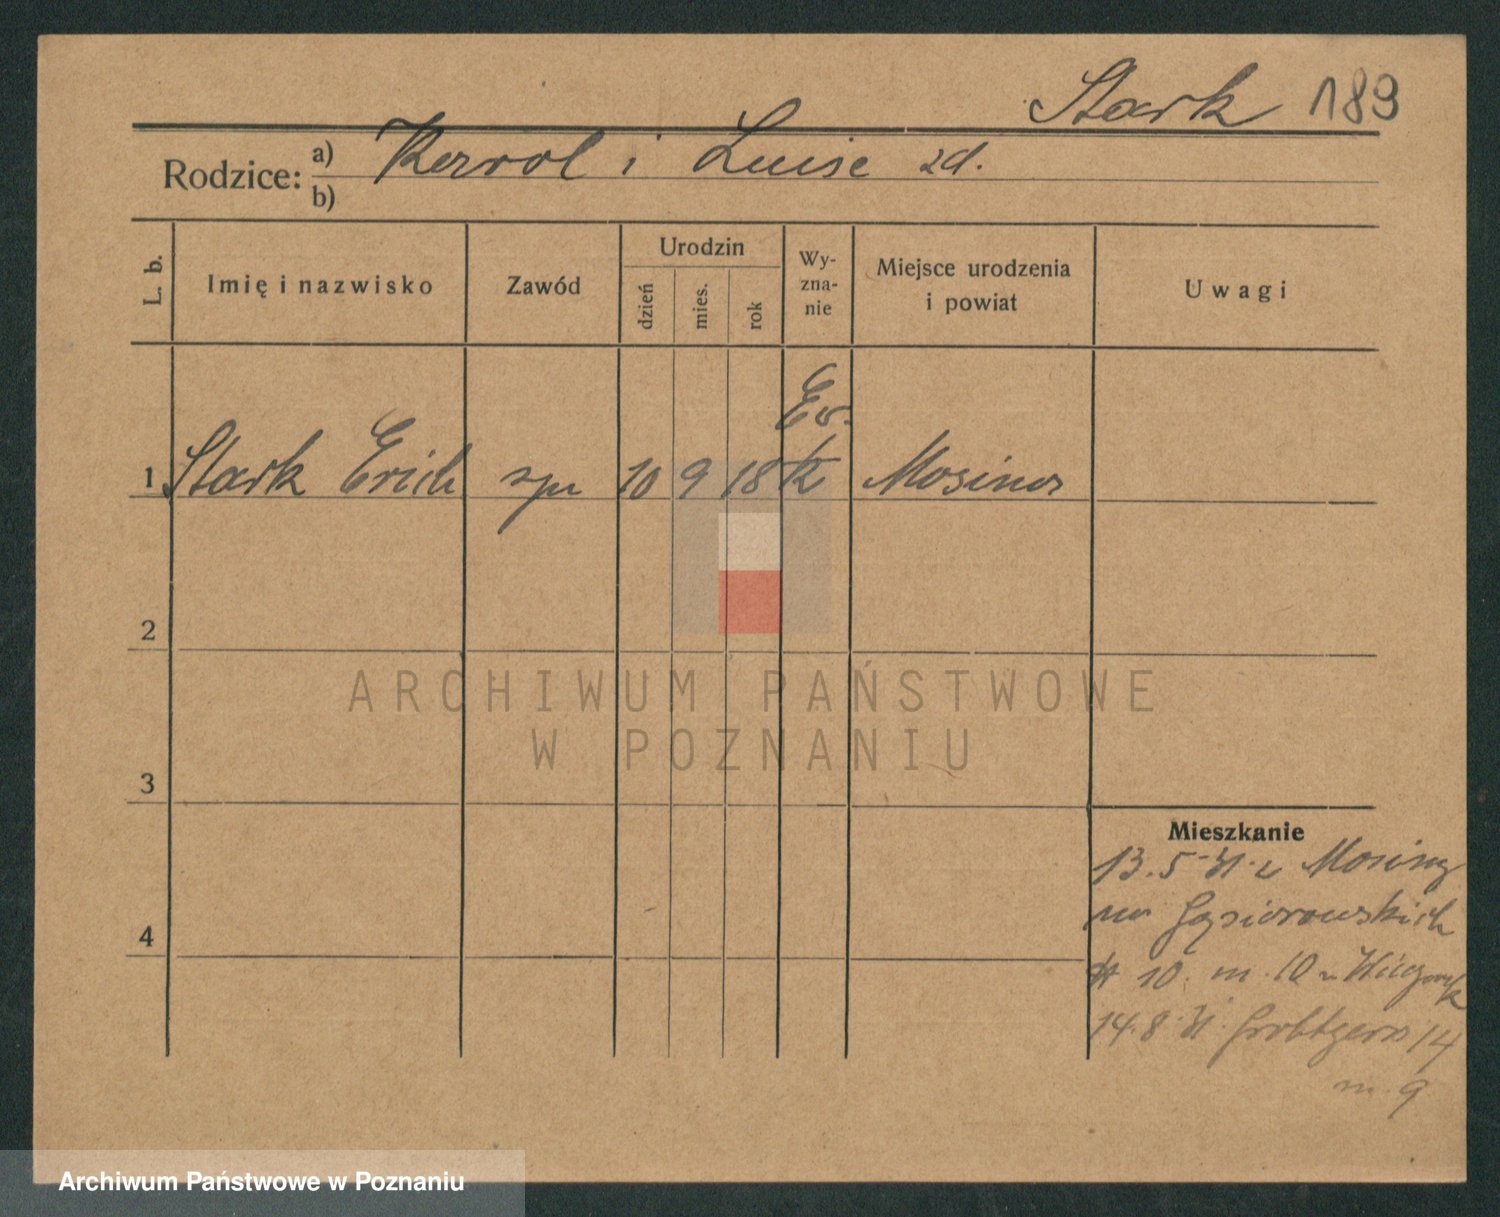 Stark 189
Rodzice: a) Karol i Luise zd.
b)
L. b. Imię i nazwisko Zawód Urodzin dzień mies. rok Wy-zna-nie Miejsce urodzenia i powiat Uwagi
Ev.
1 Stark Erich 10 9 18 k Mosina
2
3
4
Mieszkanie
13.5.31 z Mosiny
na Gąsiorowskich
10. m. 10
14.8.31. 14
m. 9
ARCHIWUM PAŃSTWOWE
W POZNANIU
Archiwum Państwowe w Poznaniu